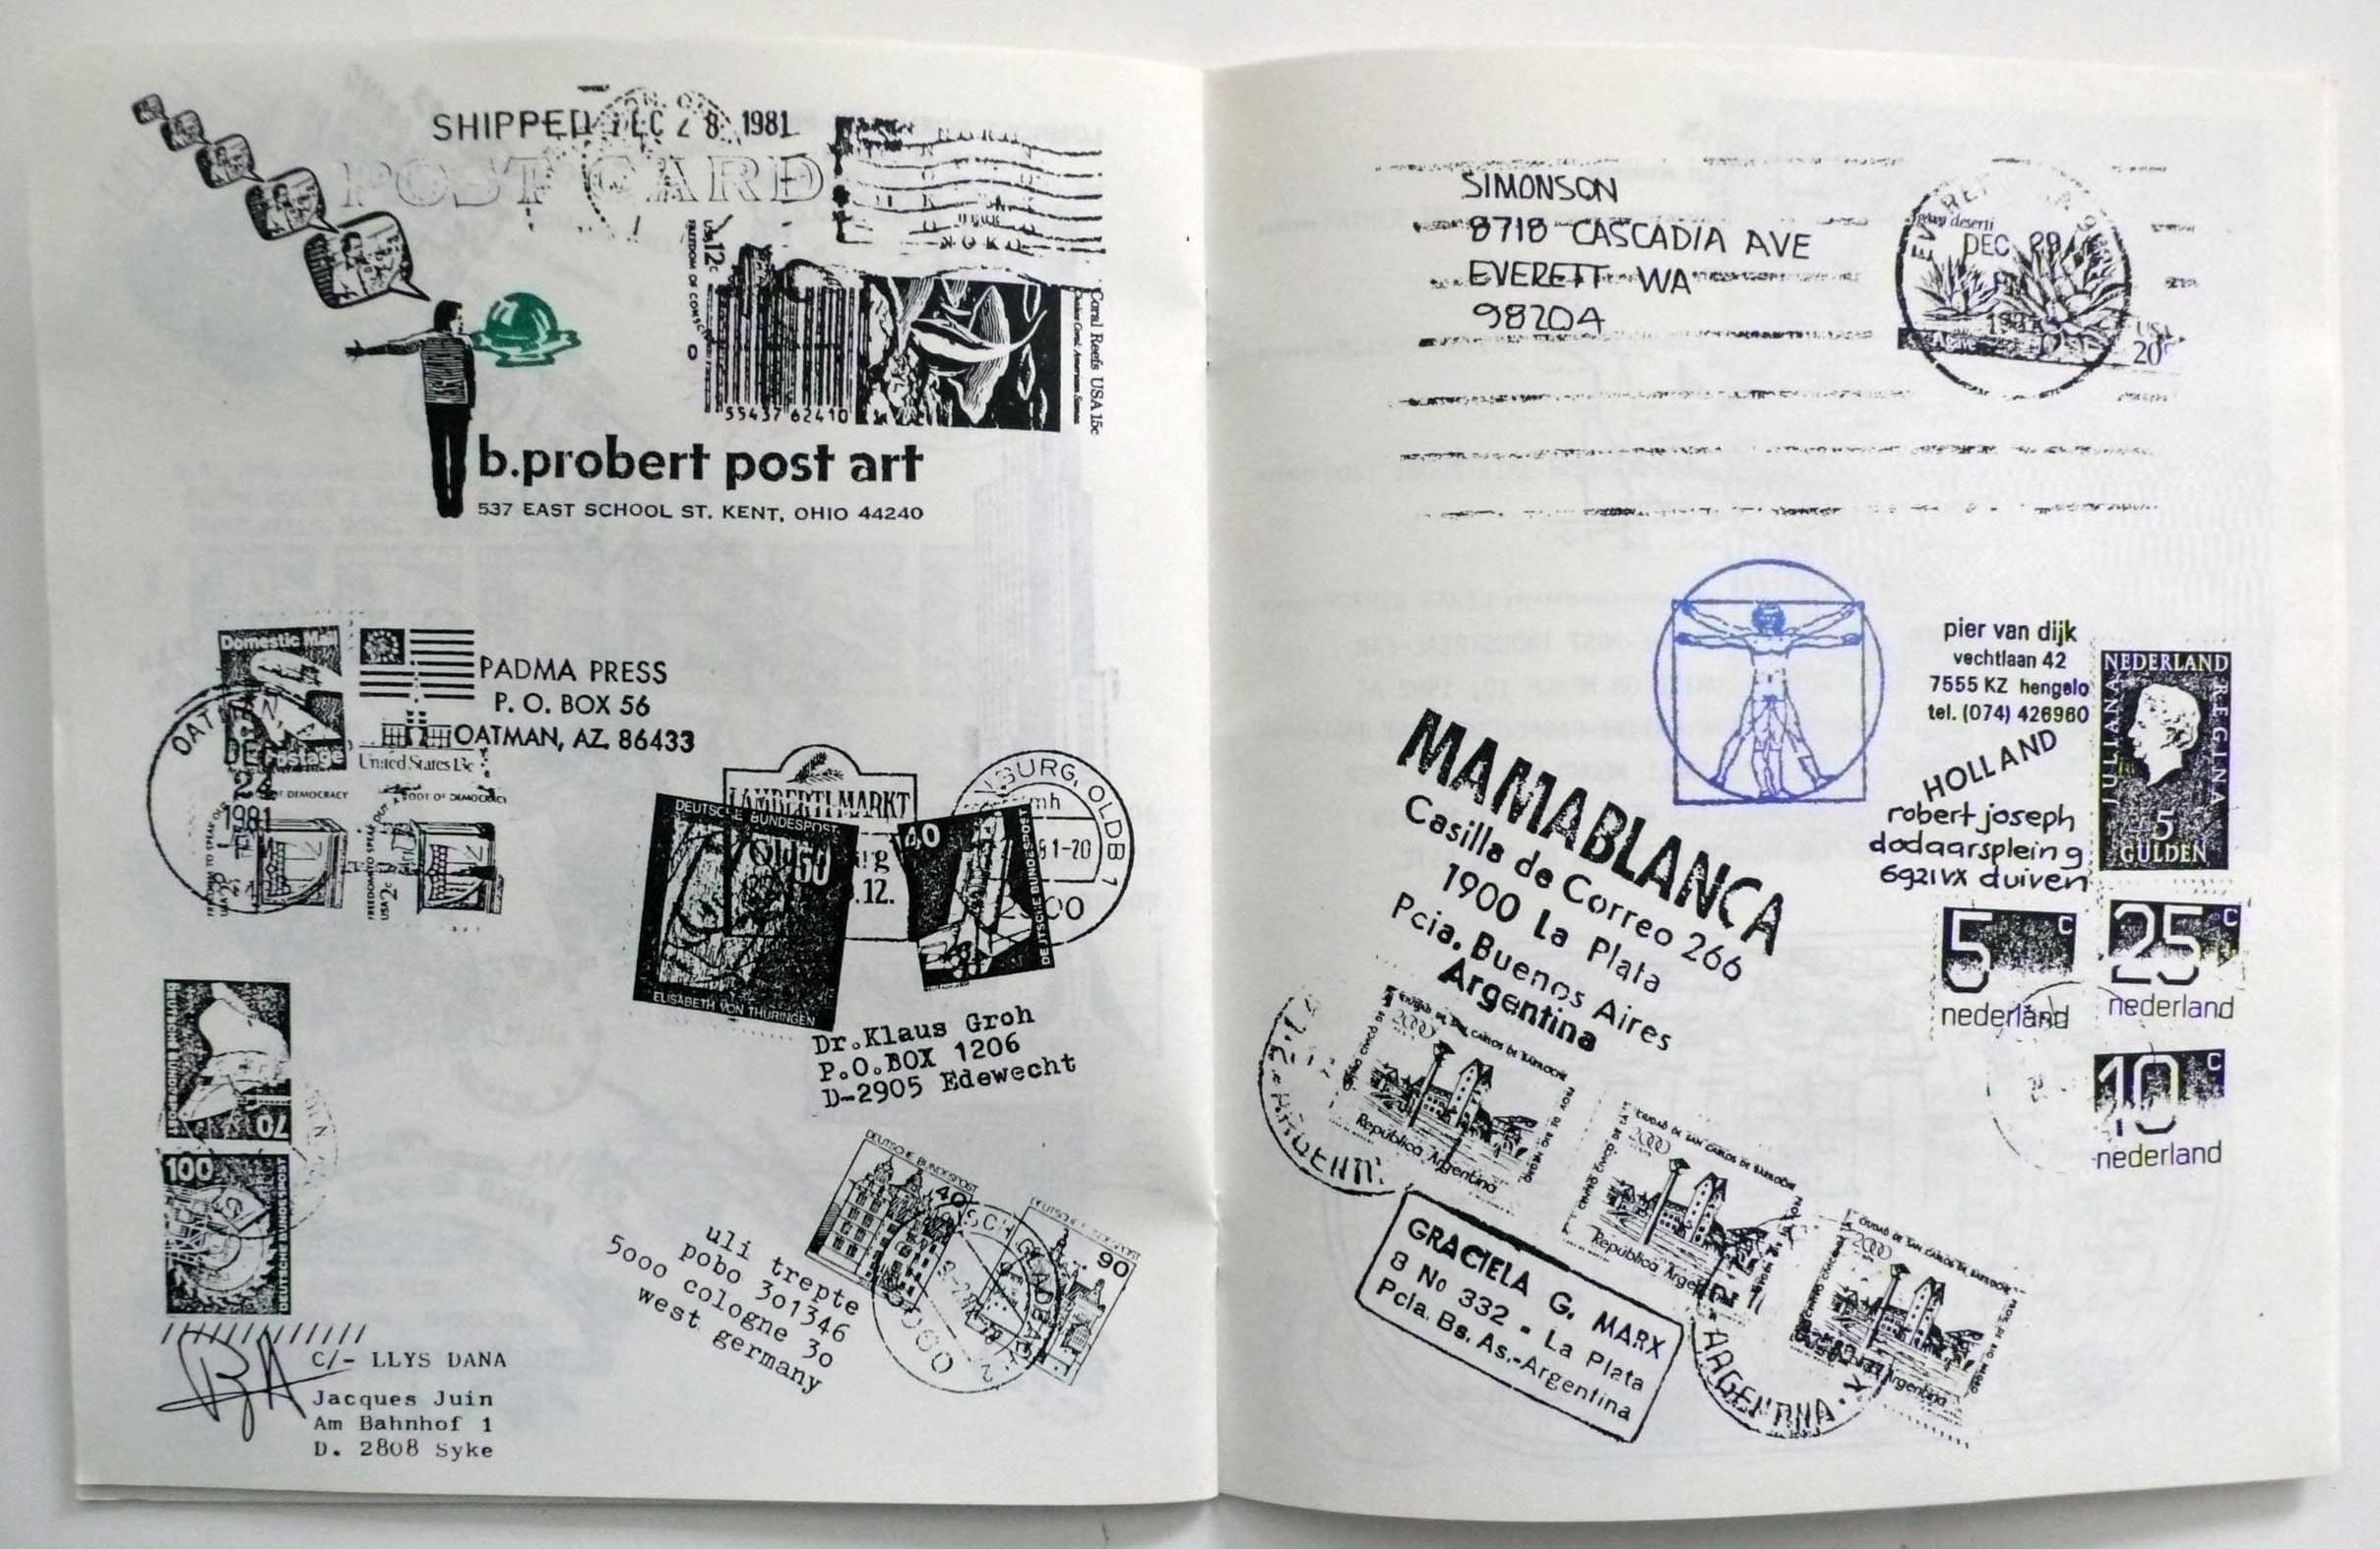 SHIPPED DEC 28 1981
POST CARD
USA 12c
Coral Reefs USA 15c
55437 62410
b.probert post art
537 EAST SCHOOL ST. KENT, OHIO 44240
Domestic Mail
Postage
PADMA PRESS
P. O. BOX 56
OATMAN, AZ. 86433
United States 13c
OF DEMOCRACY
ROOT OF DEMOCRACY
OATMAN,
24
1981
LAMBERTI-MARKT
DEUTSCHE BUNDESPOST
50
ELISABETH VON THÜRINGEN
.12.
40
DEUTSCHE BUNDESPOST
BURG, OLDB 1
81-20
Dr.Klaus Groh
P.O.BOX 1206
D-2905 Edewecht
70
100
DEUTSCHE BUNDESPOST
C/- LLYS DANA
Jacques Juin
Am Bahnhof 1
D. 2808 Syke
DEUTSCHE BUNDESPOST
40
90
uli trepte
pobo 301346
5000 cologne 30
west germany
SIMONSON
8718 CASCADIA AVE
EVERETT WA
98204
deserti
DEC 29
USA
20c
pier van dijk
vechtlaan 42
7555 KZ hengelo
tel. (074) 426960
HOLLAND
robert joseph
dodaarsplein 9
6921VX duiven
NEDERLAND
JULIANA
REGINA
5
GULDEN
5 c
nederland
25 c
nederland
10 c
nederland
MAMABLANCA
Casilla de Correo 266
1900 La Plata
Pcia. Buenos Aires
Argentina
República Argentina
CIUDAD DE SAN CARLOS DE BARILOCHE
2000
República Argentina
CIUDAD DE SAN CARLOS DE BARILOCHE
2000
Argentina
GRACIELA G. MARX
8 No 332 - La Plata
Pcia. Bs. As.-Argentina
ARGENTINA